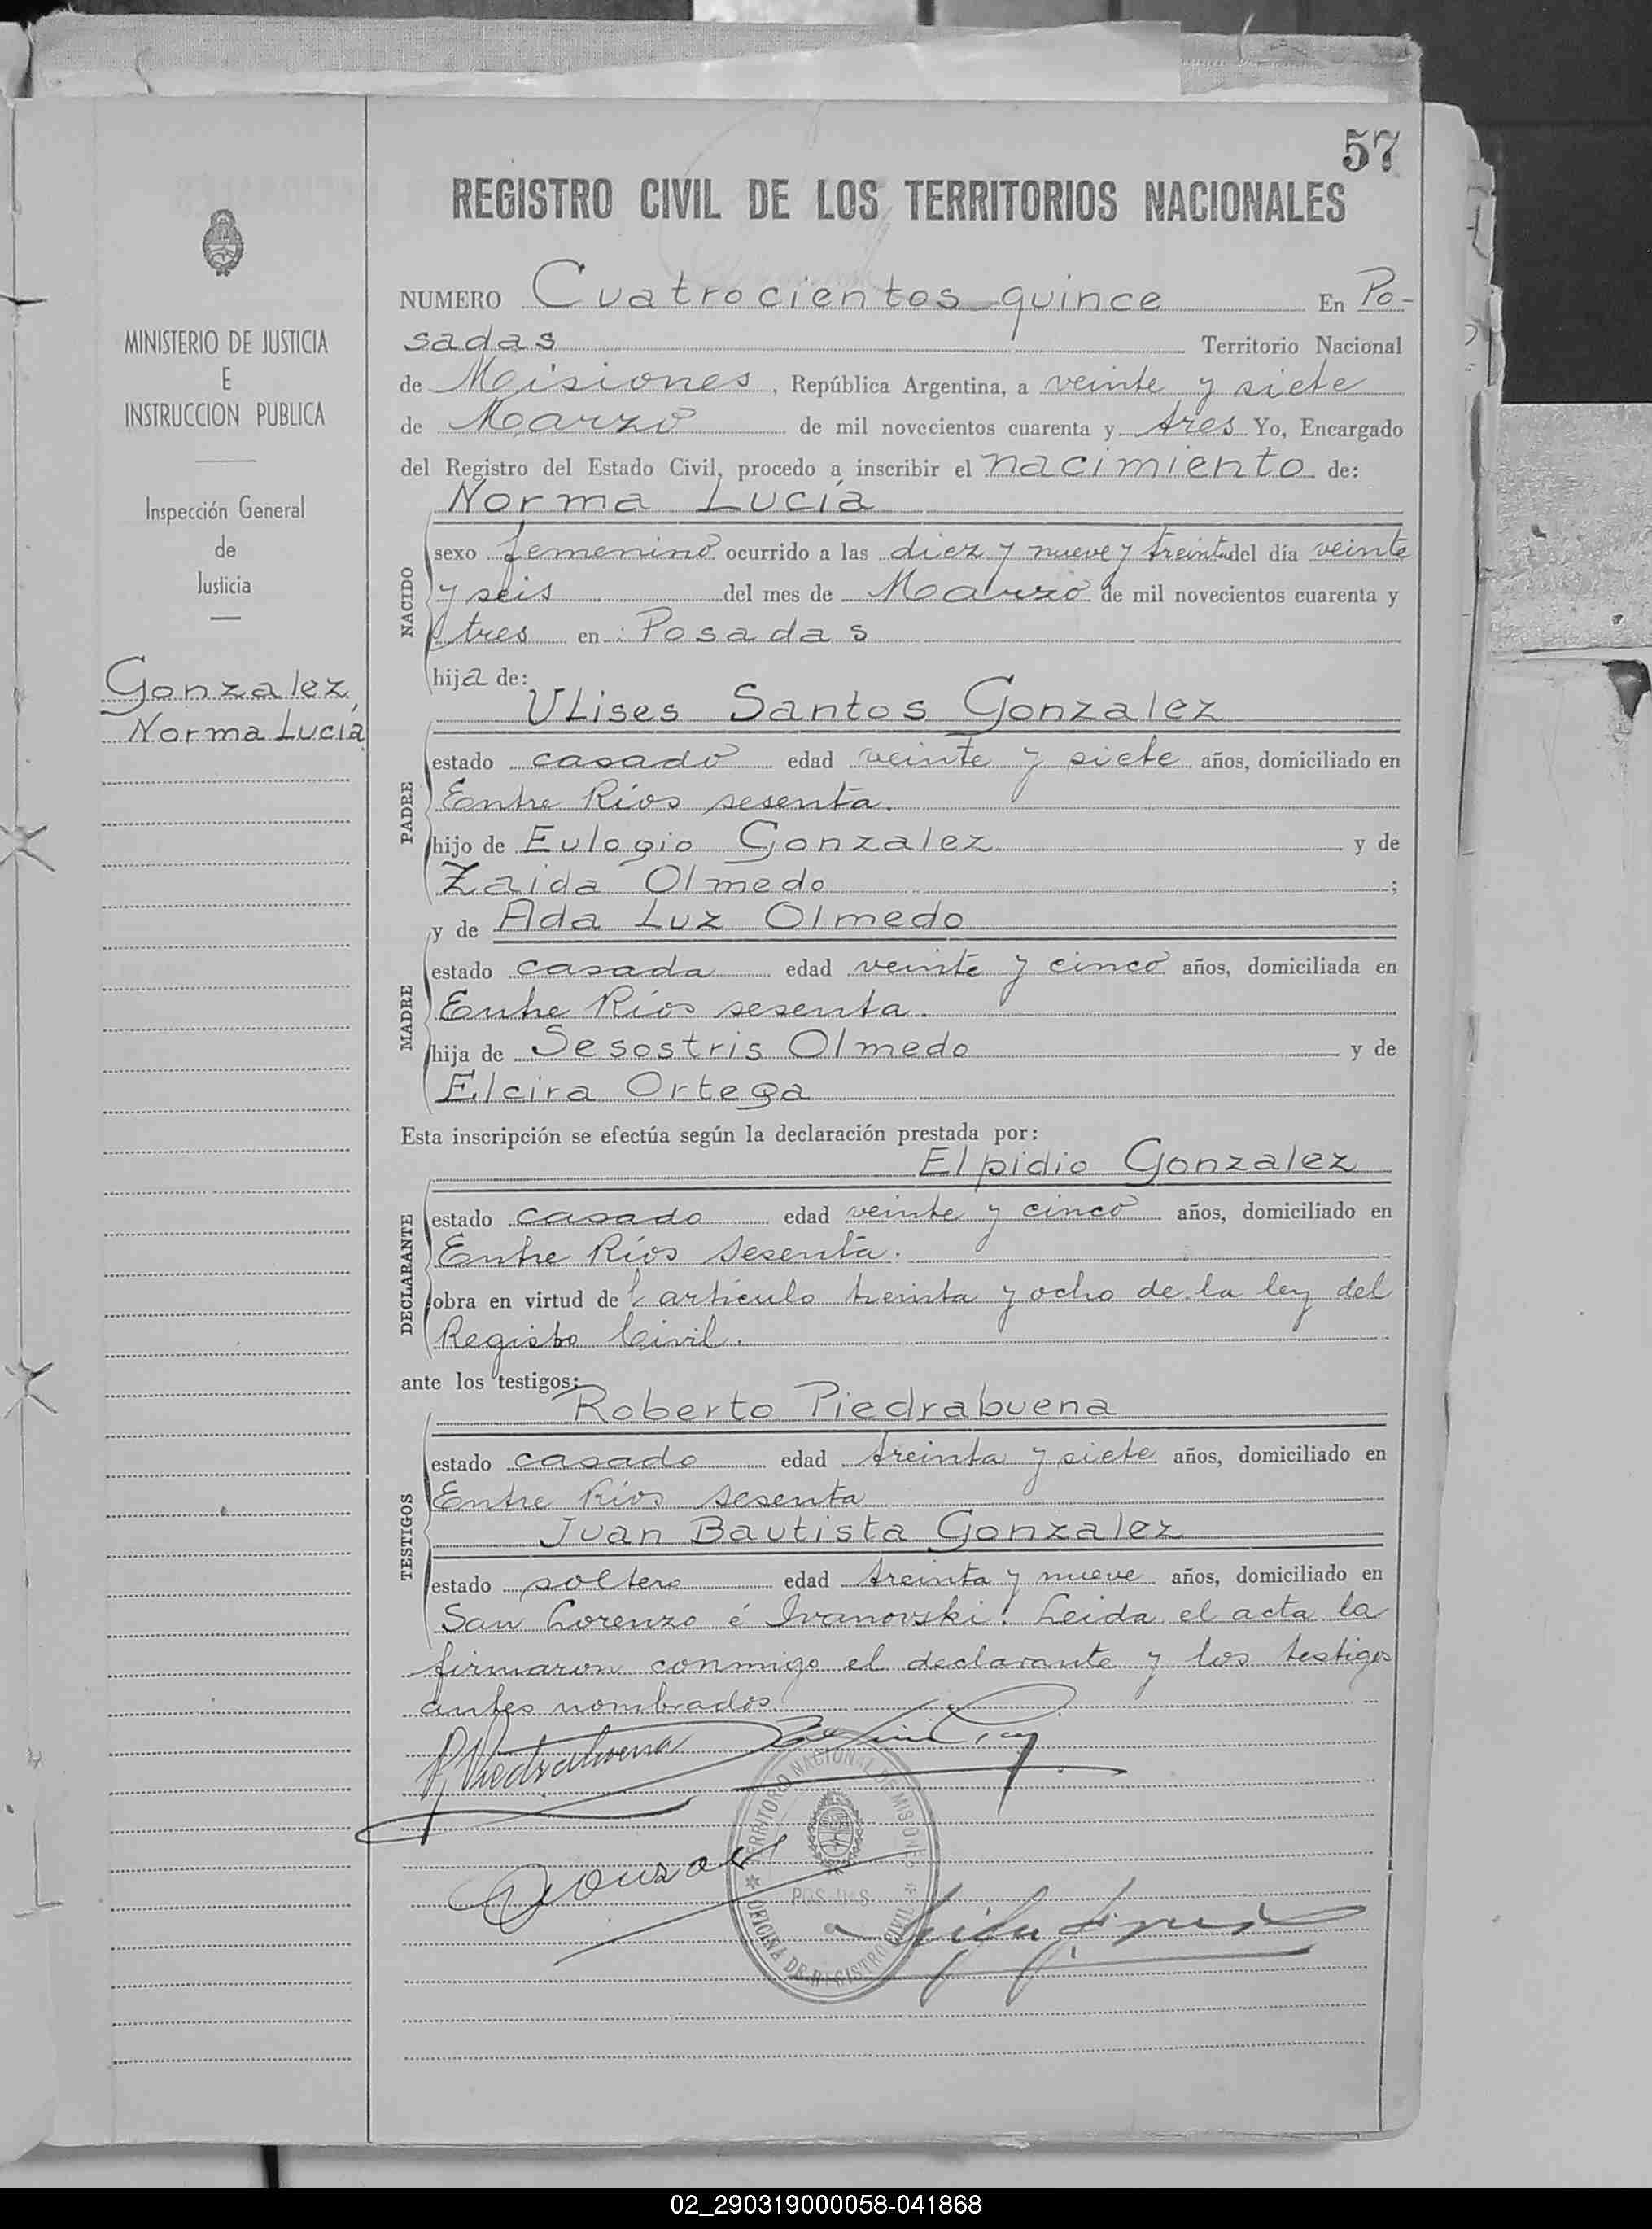 57
REGISTRO CIVIL DE LOS TERRITORIOS NACIONALES
MINISTERIO DE JUSTICIA
E
INSTRUCCION PUBLICA
Inspección General
de
Justicia
Gonzalez,
Norma Lucía
NUMERO Cuatrocientos quince En Po-
sadas Territorio Nacional
de Misiones, República Argentina, a veinte y siete
de Marzo de mil novecientos cuarenta y tres Yo, Encargado
del Registro del Estado Civil, procedo a inscribir el nacimiento de:
Norma Lucía
NACIDO
sexo femenino ocurrido a las diez y nueve y treinta del día veinte
y seis del mes de Marzo de mil novecientos cuarenta y
tres en : Posadas
hija de:
Ulises Santos Gonzalez
PADRE
estado casado edad veinte y siete años, domiciliado en
Entre Ríos sesenta.
hijo de Eulogio Gonzalez y de
Zaida Olmedo ;
y de Ada Luz Olmedo
MADRE
estado casada edad veinte y cinco años, domiciliada en
Entre Ríos sesenta.
hija de Sesostris Olmedo y de
Elcira Ortega
Esta inscripción se efectúa según la declaración prestada por:
Elpidio Gonzalez
DECLARANTE
estado casado edad veinte y cinco años, domiciliado en
Entre Ríos sesenta.
obra en virtud del artículo treinta y ocho de la ley del
Registro Civil.
ante los testigos:
Roberto Piedrabuena
TESTIGOS
estado casado edad treinta y siete años, domiciliado en
Entre Ríos sesenta
Juan Bautista Gonzalez
estado soltero edad treinta y nueve años, domiciliado en
San Lorenzo é Ivanovski. Leida el acta la
firmaron conmigo el declarante y los testigos
antes nombrados.
R. Piedrabuena
Gonzalez
TERRITORIO NACIONAL DE MISIONES
POSADAS
OFICINA DE REGISTRO CIVIL
02_290319000058-041868